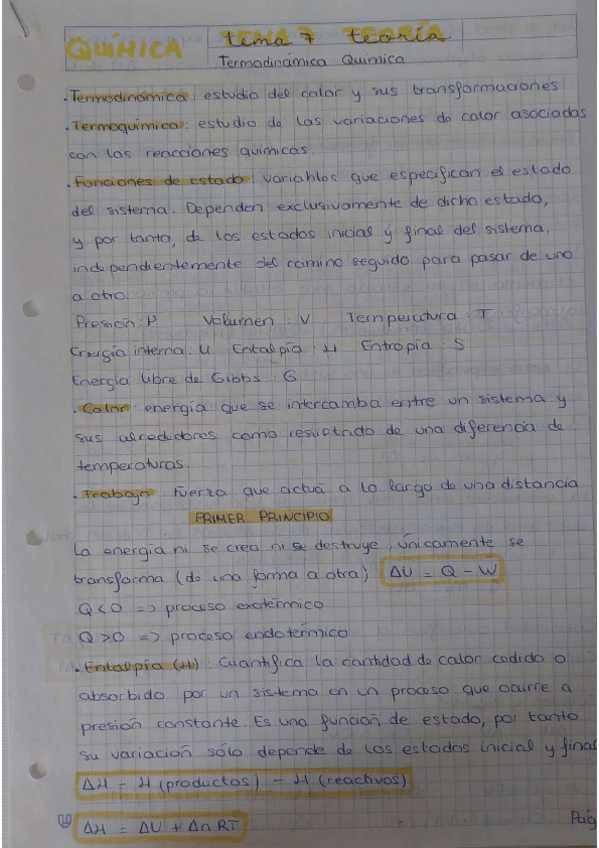 QUÍMICA TEMA 7 TEORÍA
Termodinámica Química
· Termodinámica: estudio del calor y sus transformaciones
· Termoquímica: estudio de las variaciones de calor asociadas
con las reacciones químicas.
· Funciones de estado: variables que especifican el estado
del sistema. Dependen exclusivamente de dicho estado,
y por tanto, de los estados inicial y final del sistema,
independientemente del camino seguido para pasar de uno
a otro.
Presión: P Volumen: V Temperatura: T
Energía interna: U Entalpía: H Entropia: S
Energía libre de Gibbs: G
· Calor: energía que se intercamba entre un sistema y
sus alrededores como resultado de una diferencia de
temperaturas.
· Trabajo: Fuerza que actuá a lo largo de una distancia
PRIMER PRINCIPIO
La energía ni se crea ni se destruye, únicamente se
transforma (de una forma a otra) ΔU = Q - W
Q < 0 => proceso exotérmico
Q > 0 => proceso endotérmico
· Entalpía (H): Cuantifica la cantidad de calor cedido o
absorbido por un sistema en un proceso que ocurre a
presión constante. Es una función de estado, por tanto
su variación sólo depende de los estados inicial y final
ΔH = H (productos) - H (reactivos)
ΔH = ΔU + Δn RT
Pág